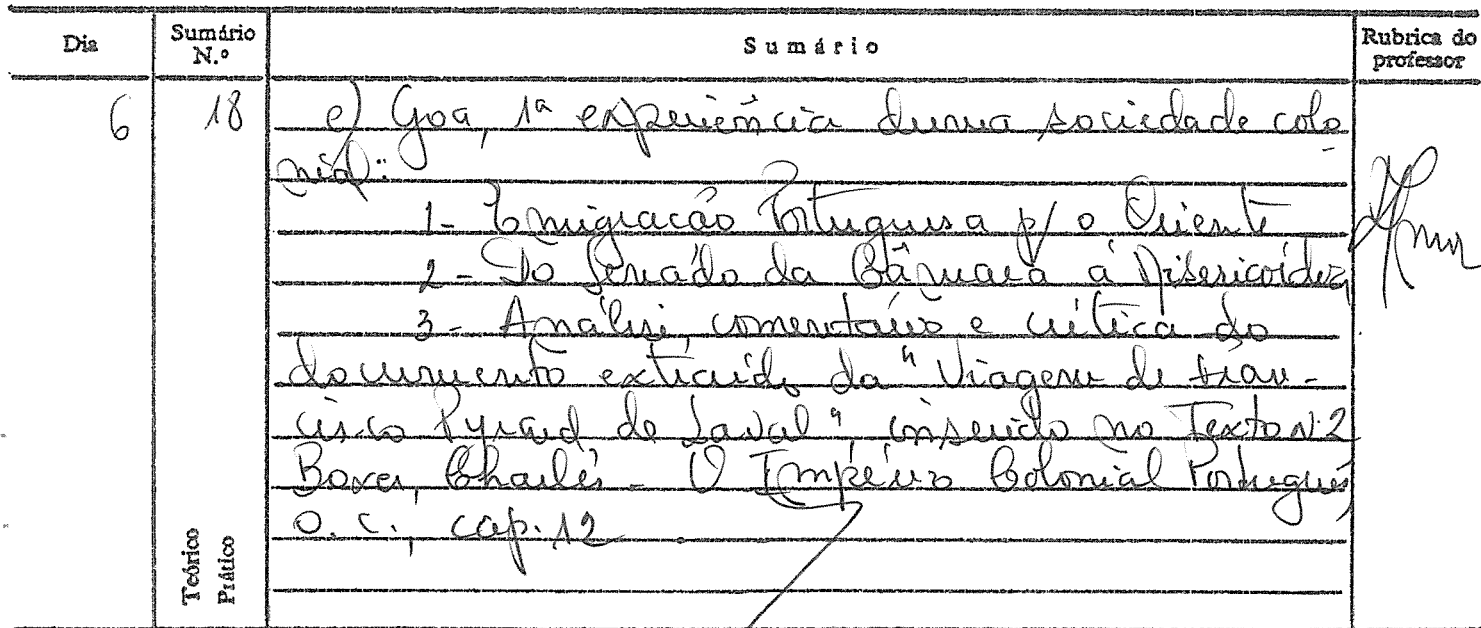 Dia Sumário N.º Sumário Rubrica do professor
6 18 e) Goa, 1ª experiência duma sociedade colo
nial:
1 - Emigração Portuguesa p/ o Oriente
2 - Do Senado da Câmara à Misericórdia
3 - Análise comentário e crítica do
documento extraído da "Viagem de Fran-
cisco Pyrard de Laval" inserido no Texto N.2
Boxer, Charles - O Império Colonial Português,
o. c., cap. 12
Teórico
Prático